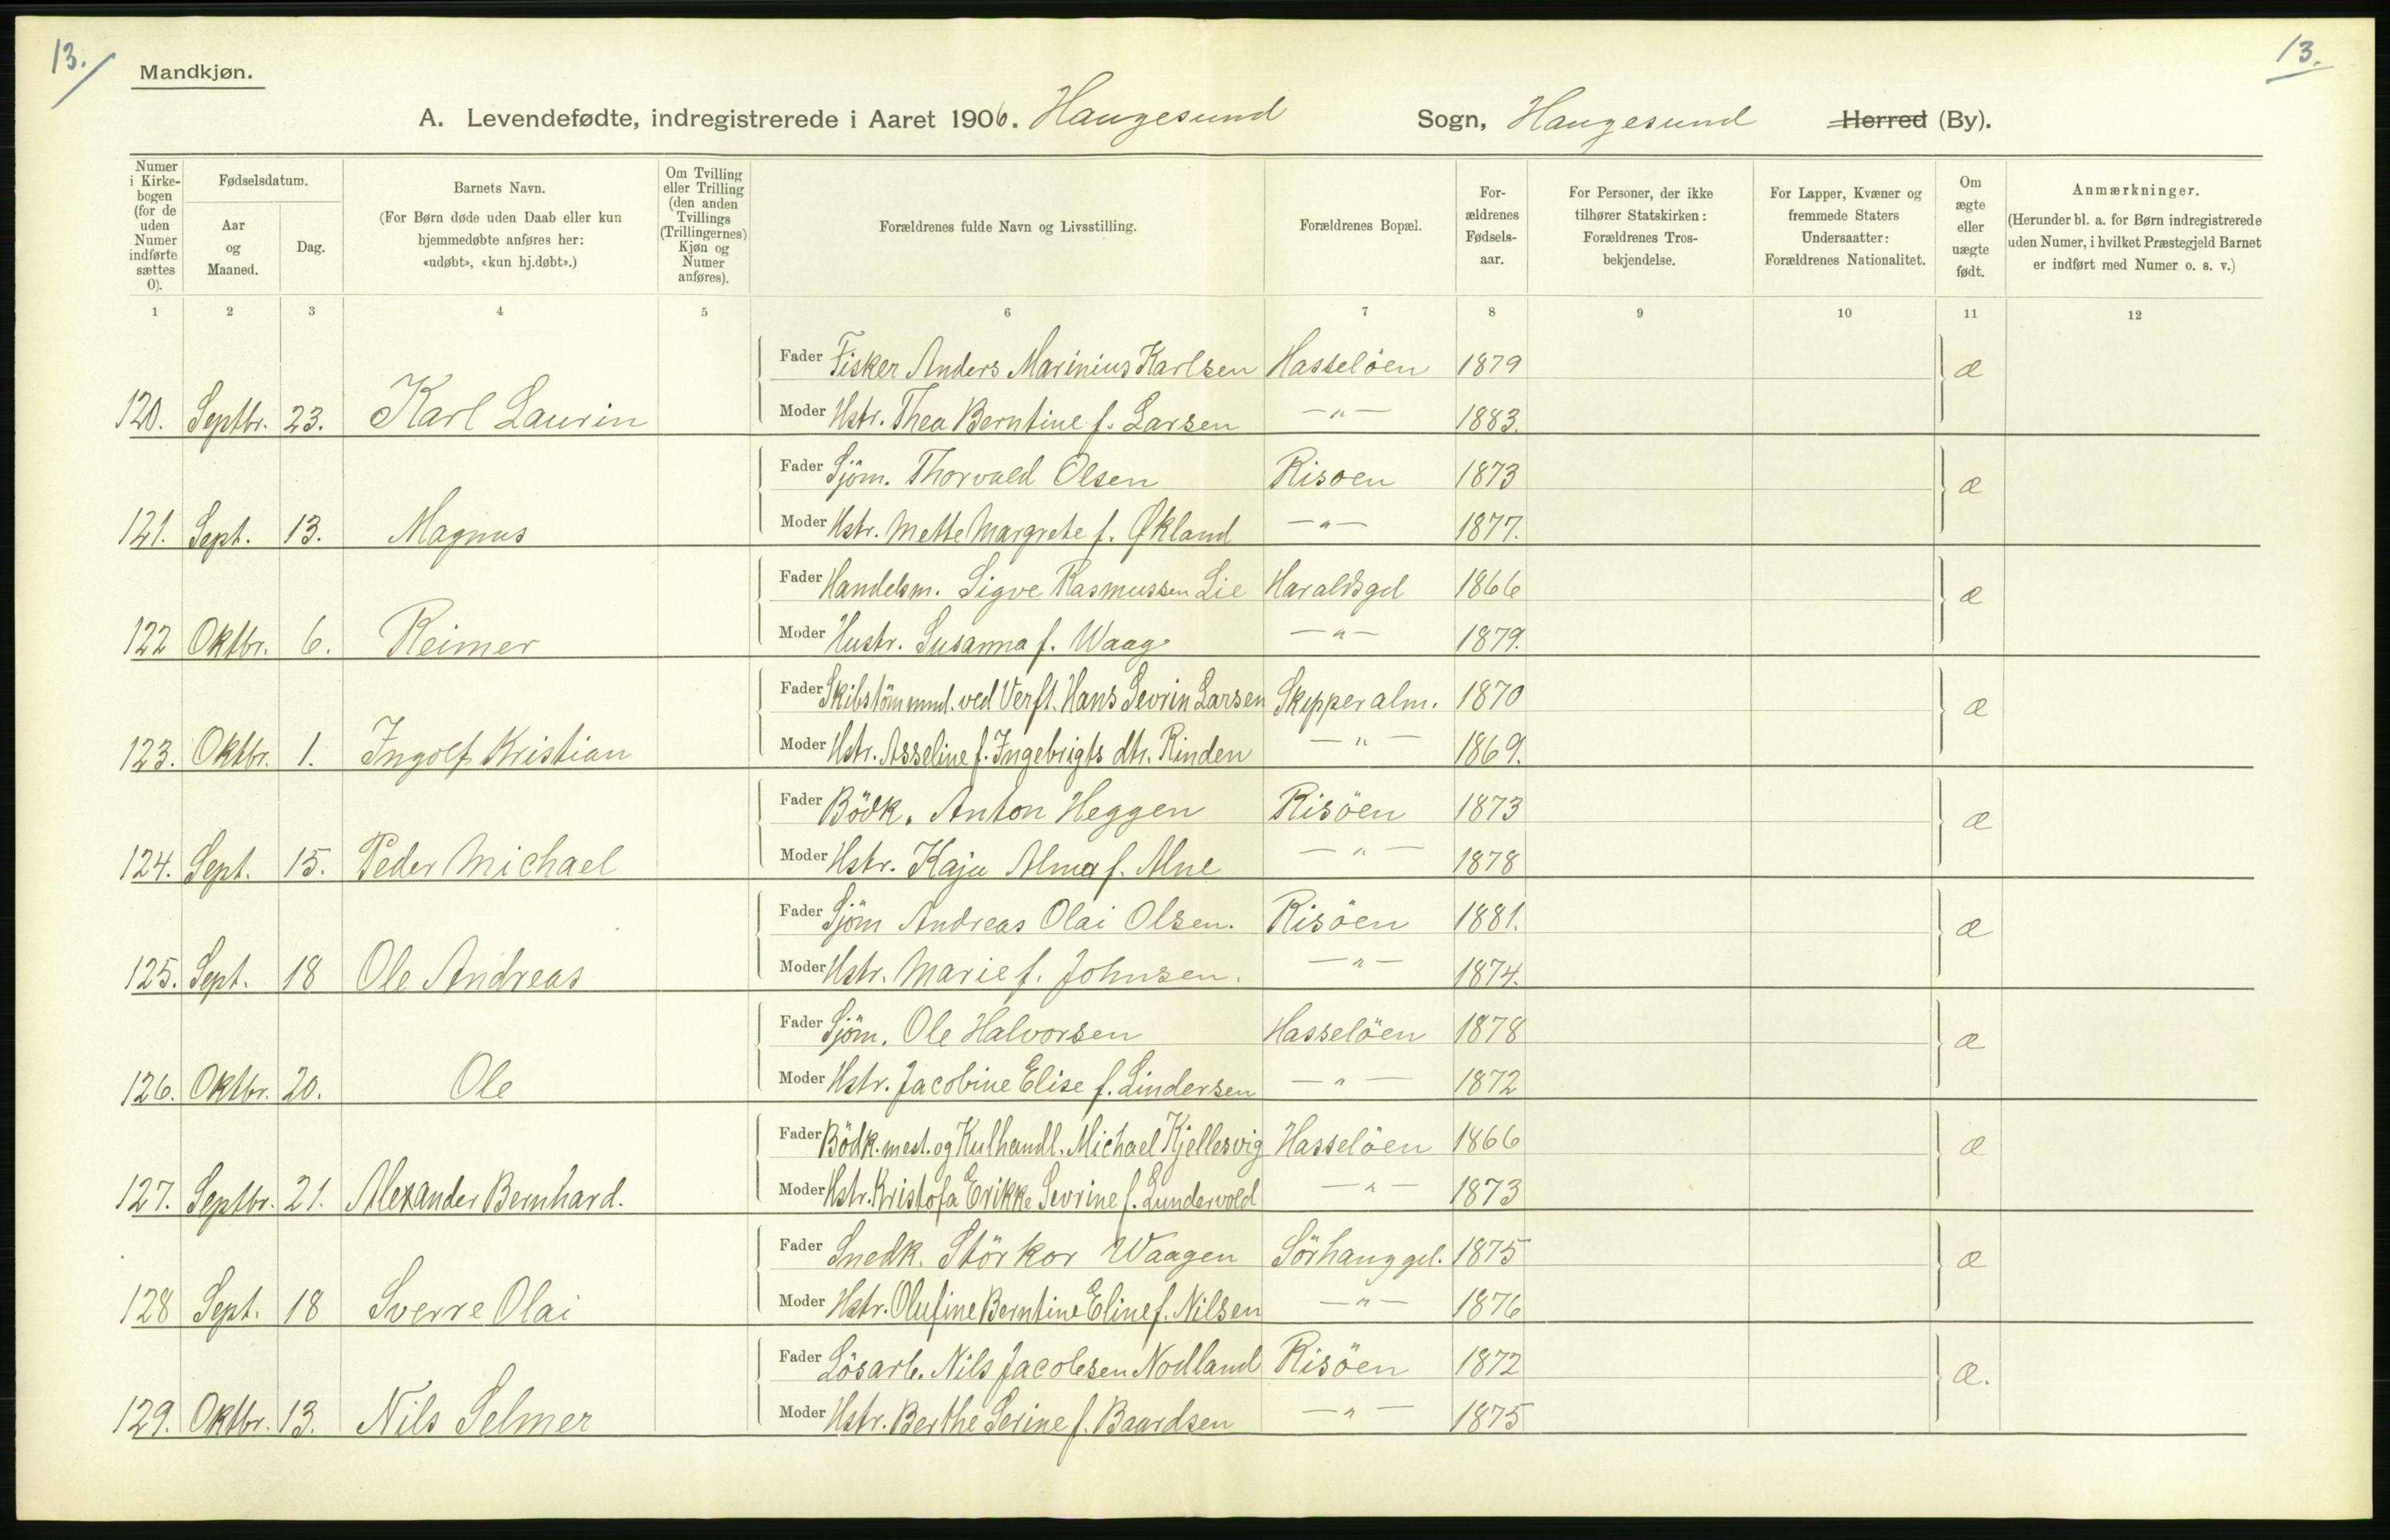 13. 13.
Mandkjøn.
A. Levendefødte, indregistrerede i Aaret 1906. Haugesund Sogn, Haugesund Herred (By).
Numer i Kirkebogen (for de uden Numer indførte sættes 0). | Fødselsdatum. Aar og Maaned. | Dag. | Barnets Navn. (For Børn døde uden Daab eller kun hjemmedøbte anføres her: «udøbt», «kun hj.døbt».) | Om Tvilling eller Trilling (den anden Tvillings (Trillingernes) Kjøn og Numer anføres). | Forældrenes fulde Navn og Livsstilling. | Forældrenes Bopæl. | Forældrenes Fødselsaar. | For Personer, der ikke tilhører Statskirken: Forældrenes Trosbekjendelse. | For Lapper, Kvæner og fremmede Staters Undersaatter: Forældrenes Nationalitet. | Om ægte eller uægte født. | Anmærkninger. (Herunder bl. a. for Børn indregistrerede uden Numer, i hvilket Præstegjeld Barnet er indført med Numer o. s. v.)
1 2 3 4 5 6 7 8 9 10 11 12
Fader Fisker Anders Marinius Karlsen Hasselöen 1879 æ
120. Septbr. 23. Karl Laurin Moder Hstr. Thea Berntine f. Larsen —"— 1883.
Fader Sjöm. Thorvald Olsen Risoen 1873 æ
121. Sept. 13. Magnus Moder Hstr. Mette Margrete f. Økland —"— 1877.
Fader Handelsm. Sigve Rasmussen Lie Haraldsgd 1866 æ
122 Oktbr. 6. Reimer Moder Hustr. Susanna f. Waage —"— 1879.
Fader Skibstömmmd. ved Verft. Hans Sevrin Larsen Skipperalm. 1870 æ
123. Oktbr. 1. Ingolf Kristian Moder Hstr. Asseline f. Ingebrigts dtr. Rinden —"— 1869.
Fader Bödk. Anton Heggen Risöen 1873 æ
124. Sept. 15. Peder Michael Moder Hstr. Kaja Alma f. Alne —"— 1878
Fader Sjöm Andreas Olai Olsen. Risöen 1881. æ
125. Sept. 18 Ole Andreas Moder Hstr. Marie f. Johnsen. —"— 1874.
Fader Sjöm. Ole Halvorsen Hasselöen 1878 æ
126. Oktbr. 20. Ole Moder Hstr. Jacobine Elise f. Lindersen —"— 1872
Fader Bödk. mest. og Kulhandl. Michael Kjellesvig Hasselöen 1866 æ
127. Septbr. 21. Alexander Bernhard. Moder Hstr. Kristofa Erikke Sevrine f. Lundervold —"— 1873
Fader Snedk. Störkor Waagen Sörhauggd. 1875 æ
128 Sept. 18 Sverre Olai Moder Hstr. Olufine Berntine Eline f. Nilsen —"— 1876
Fader Lösarb. Nils Jacobsen Nodland Risöen 1872 æ.
129. Oktbr. 13. Nils Selmer Moder Hstr. Berthe Serine f. Baardsen —"— 1875